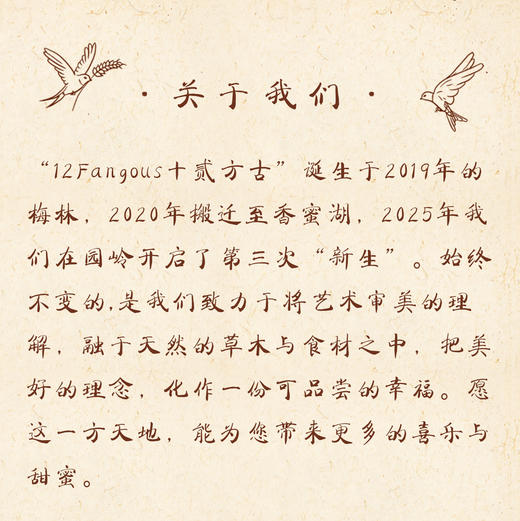 ·关于我们·
“12Fangous十贰方古”诞生于2019年的
梅林，2020年搬迁至香蜜湖，2025年我
们在园岭开启了第三次“新生”。始终
不变的,是我们致力于将艺术审美的理
解，融于天然的草木与食材之中，把美
好的理念，化作一份可品尝的幸福。愿
这一方天地，能为您带来更多的喜乐与
甜蜜。